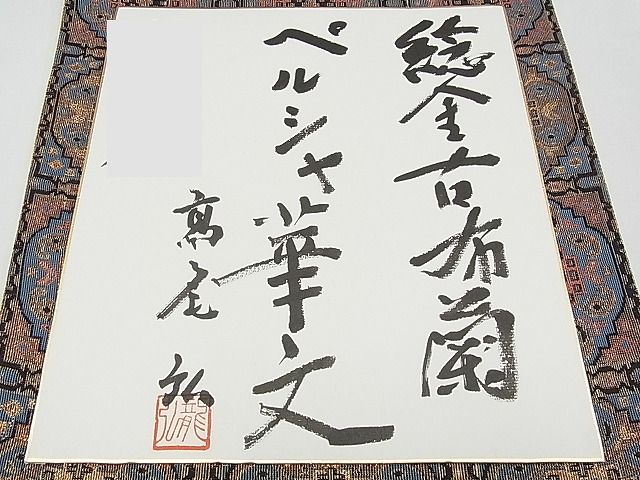 鯰金古布蘭
ペルシャ華文
高尾弘